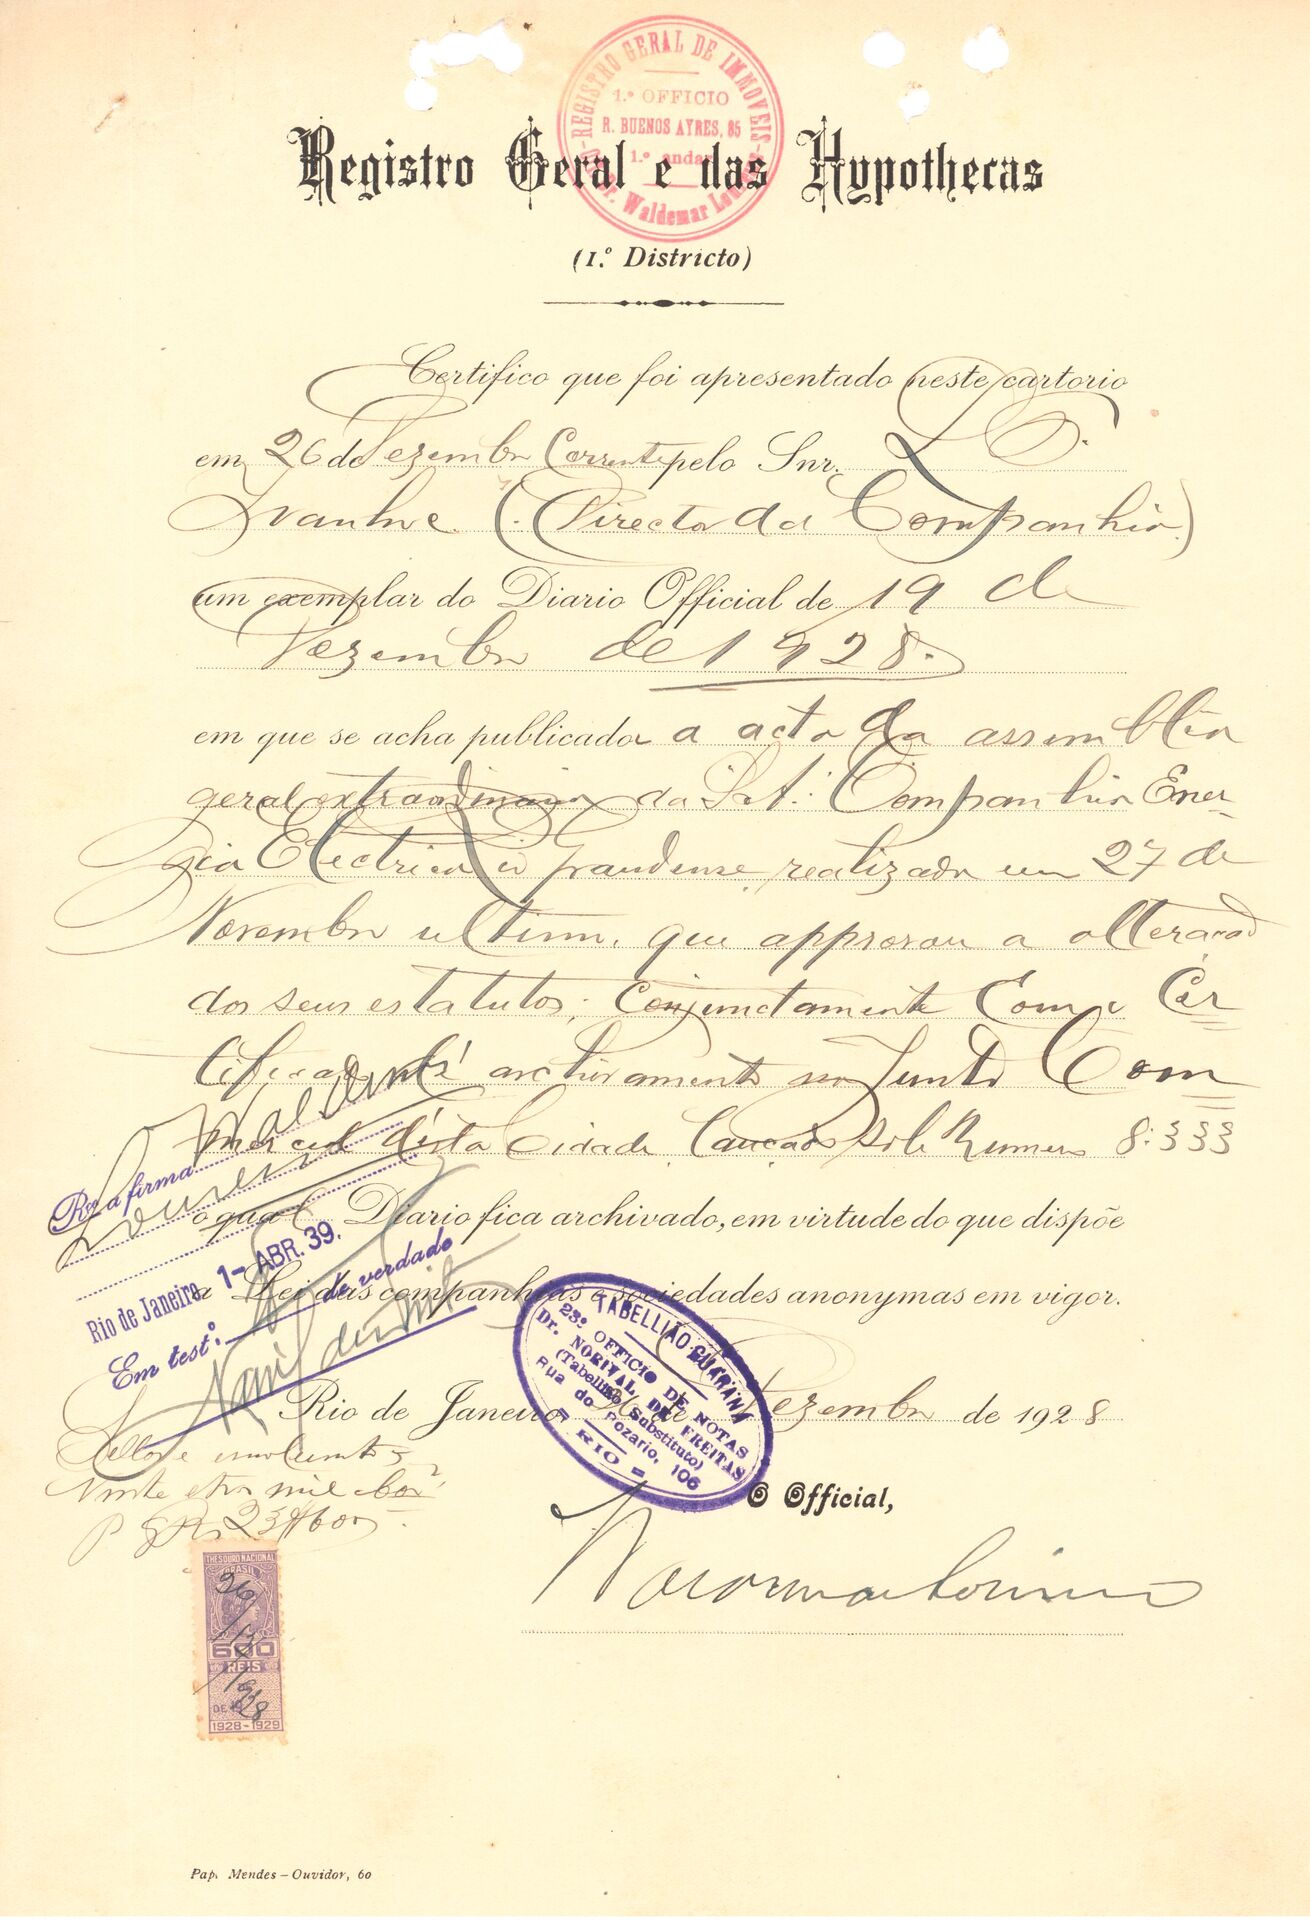 REGISTRO GERAL DE IMMOVEIS
1.º OFFICIO
R. BUENOS AYRES, 85
1.º andar
Dr. Waldemar
Registro Geral e das Hypothecas
(1.º Districto)
Certifico que foi apresentado neste cartorio
em 26 de Dezembro Corrente pelo Snr.
(Director da Companhia)
um exemplar do Diario Official de 19 de
Dezembro de 1928.
em que se acha publicado a acta da assembléa
geral extraordinaria da Companhia Ener-
gia Electrica Rio Grandense, realizada em 27 de
Novembro ultimo, que approvou a alteração
dos seus estatutos; Conjunctamente Com a Cer
archivamento na Junta Com
mercial desta Cidade sob Numero 8:333
o qual Diario fica archivado, em virtude do que dispõe
a Lei das companhias e sociedades anonymas em vigor.
Rio de Janeiro, 26 de Dezembro de 1928
Sello e emolumentos
Vinte e tres mil
23$600
O Official,
a firma
Waldemar
Loureiro
Rio de Janeiro, 1- ABR. 39.
Em testº. da verdade
TABELLIÃO GUARANÁ
23º OFFICIO DE NOTAS
Dr. NORIVAL DE FREITAS
(Tabellião Substituto)
Rua do Rozario, 106
RIO
THESOURO NACIONAL
BRASIL
26/12/1928
600
REIS
DE 19
1928-1929
Pap. Mendes – Ouvidor, 60